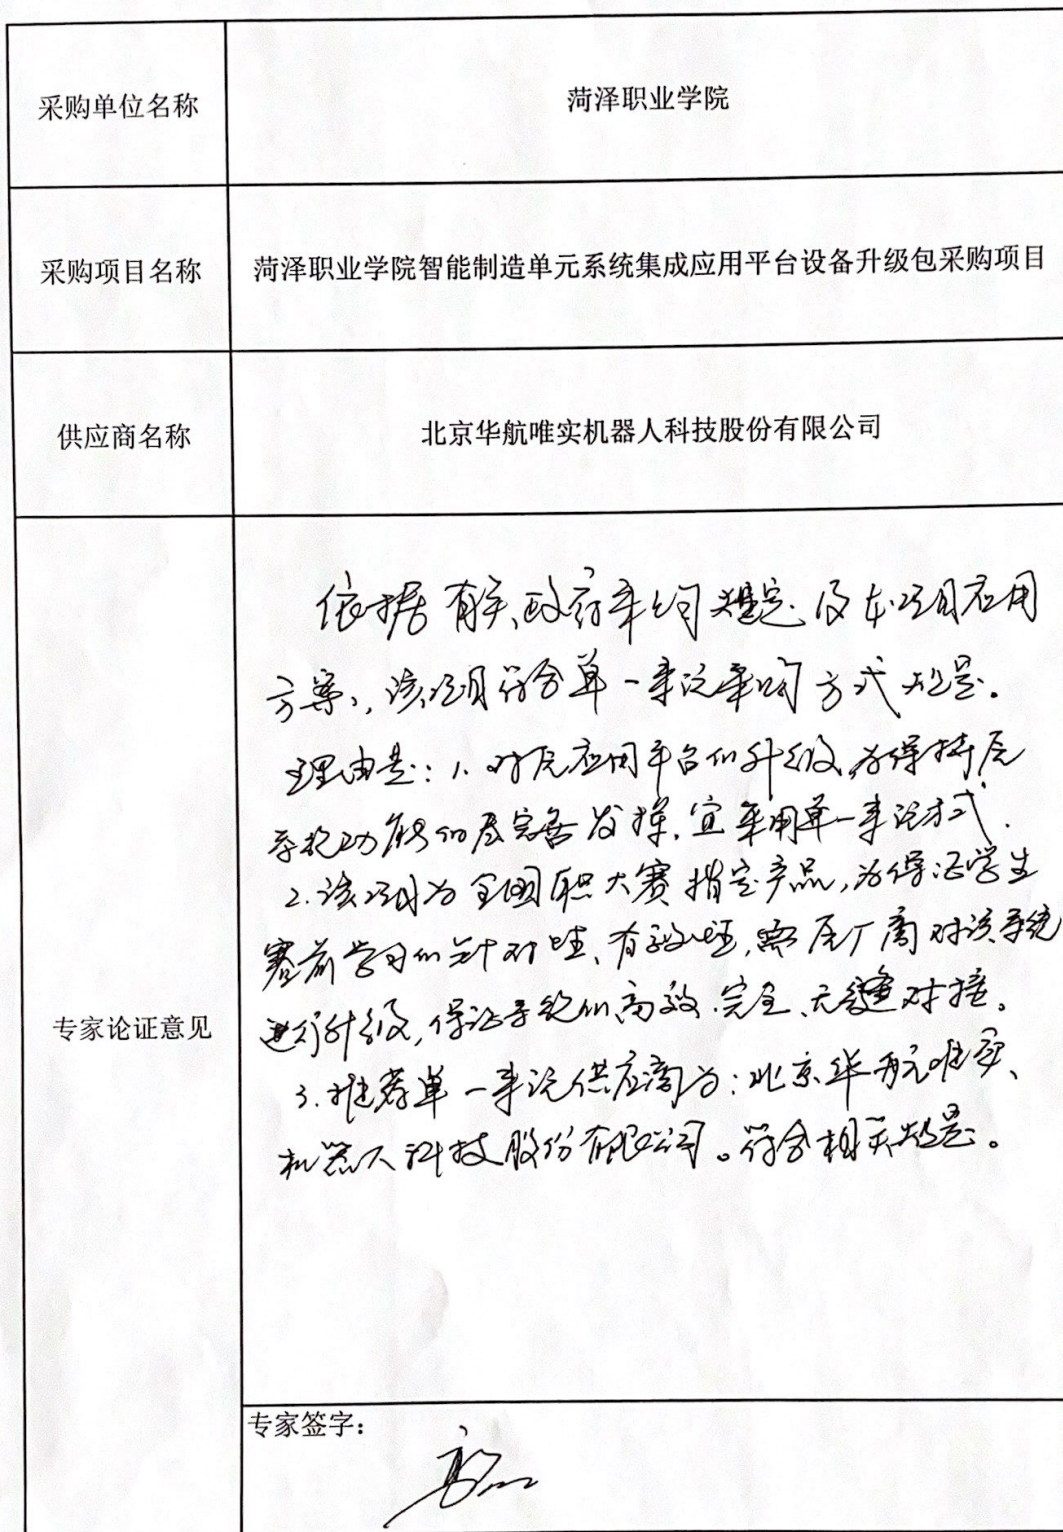 采购单位名称
菏泽职业学院
采购项目名称
菏泽职业学院智能制造单元系统集成应用平台设备升级包采购项目
供应商名称
北京华航唯实机器人科技股份有限公司
专家论证意见
依据有关政府采购规定及本项目应用
方案,该项目符合单一来源采购方式规定。
理由是:1.对原应用平台的升级,为保持原
系统功能的完善发挥,宜采用单一来源方式.
2.该项目为全国职大赛指定产品,为保证学生
赛前学习的针对性、有效性,原厂商对该系统
进行升级,保证系统的高效、完全、无缝对接。
3.推荐单一来源供应商为:北京华航唯实、
机器人科技股份有限公司。符合相关规定。
专家签字: